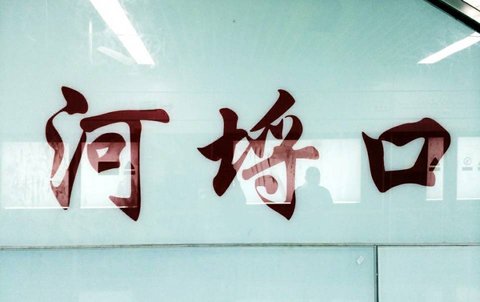 河埒口